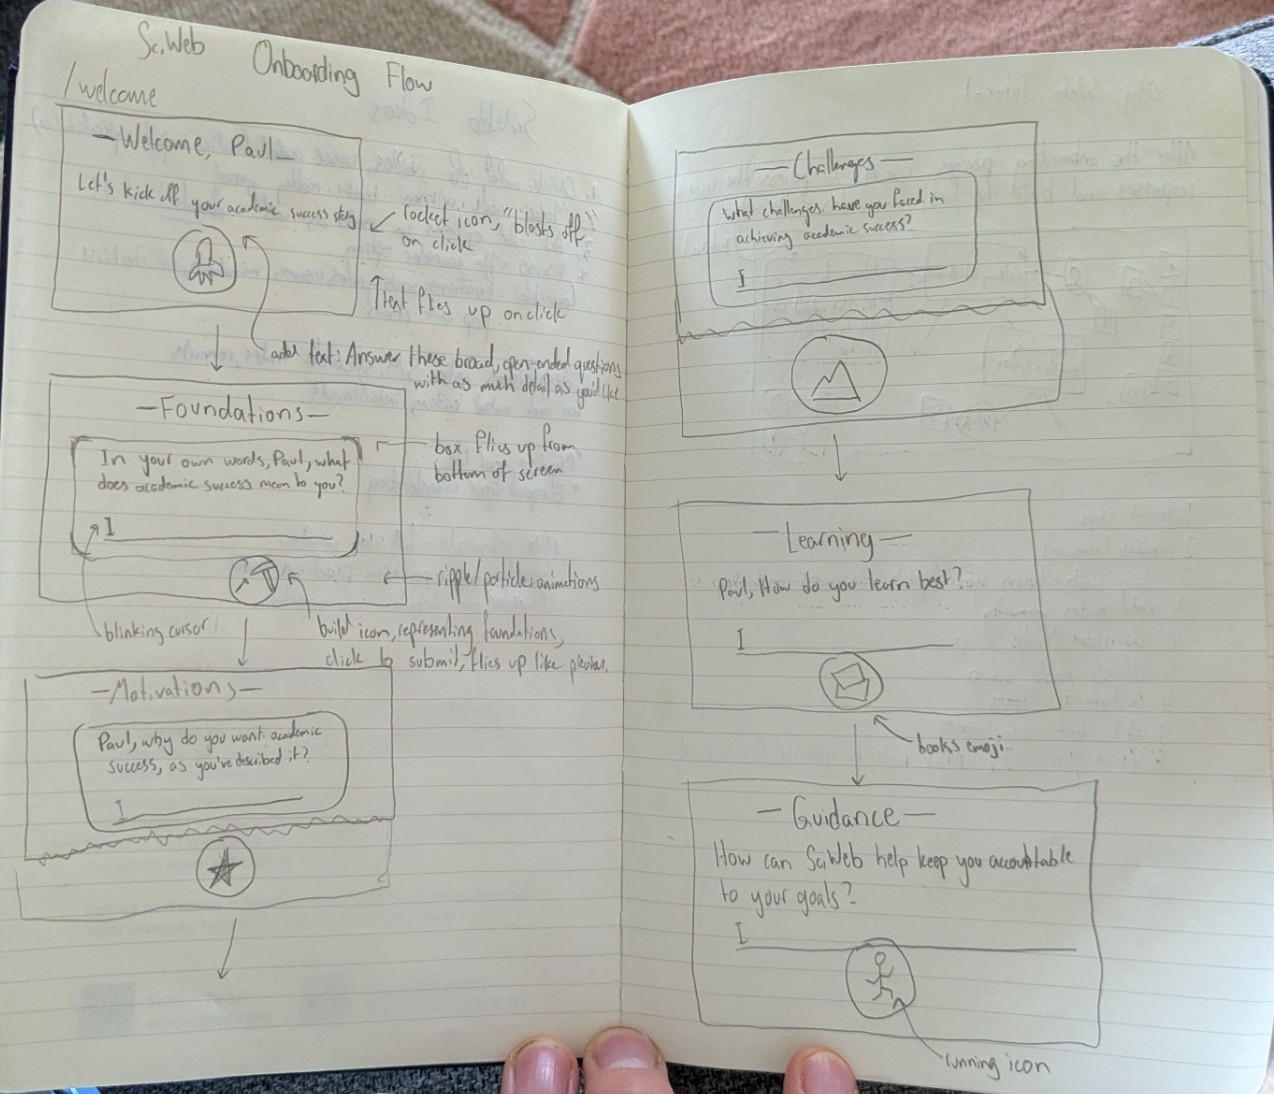 SciWeb Onboarding Flow
/welcome
—Welcome, Paul—
Let's kick off your academic success story
rocket icon, "blasts off"
on click
Text flies up on click
add text: Answer these broad, open-ended questions
with as much detail as you'd like
—Foundations—
In your own words, Paul, what
does academic success mean to you?
I
box flies up from
bottom of screen
ripple/particle animations
blinking cursor
build icon, representing foundations,
click to submit, flies up like previous.
—Motivations—
Paul, why do you want academic
success, as you've described it?
I
—Challenges—
What challenges have you faced in
achieving academic success?
I
—Learning—
Paul, How do you learn best?
I
books emoji
—Guidance—
How can SciWeb help keep you accountable
to your goals?
I
running icon